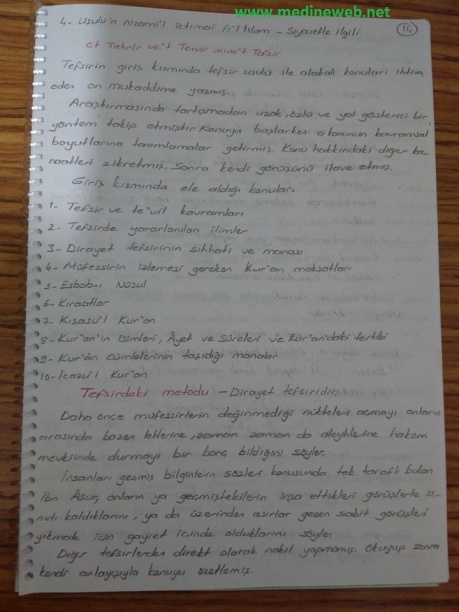 www.medineweb.net
14
4- Usulü'n nizamil ictimai fi'l islam - Siyasetle ilgili
et Tahrir ve't Tenvir mine't Tefsir
Tefsirin giriş kısmında tefsir usulü ile alakalı konuları ihtiva
eden on mukaddime yazmış.
Araştırmasında tartışmadan uzak, özlü ve yol gösterici bir
yöntem takip etmiştir. Konuya başlarken o konunun kavramsal
boyutlarına tanımlamalar getirmiş. Konu hakkındaki diğer ka-
naatleri zikretmiş. Sonra kendi görüşünü ilave etmiş.
Giriş kısmında ele aldığı konular:
1- Tefsir ve te'vil kavramları
2- Tefsirde yararlanılan ilimler
3- Dirayet tefsirinin sıhhati ve manası
4- Müfessirin izlemesi gereken Kur'an maksatları
5- Esbab-ı Nüzul
6- Kıraatlar
7- Kısasu'l Kur'an
8- Kur'an'ın isimleri, Âyet ve Sûreleri ve Kur'an'daki tertibi
9- Kur'ân cümlelerinin taşıdığı manalar
10- İcazu'l Kur'an
Tefsirdeki metodu - Dirayet tefsiridir.
Daha önce müfessirlerin değinmediği nükteleri açmayı onların
arasında bazen lehlerine, zaman zaman da aleyhlerine hakem
mevkiinde durmayı bir borç bildiğini söyler.
İnsanları geçmiş bilginlerin sözleri konusunda tek taraflı bulan
İbn Aşur, onların ya geçmiştekilerin inşa ettikleri görüşlerle sı-
nırlı kaldıklarını, ya da üzerinden asırlar geçen sabit görüşleri
yıkmak için gayret içinde olduklarını söyler.
Diğer tefsirlerden direkt olarak nakil yapmamış. Okuyup sonra
kendi anlayışıyla konuyu özetlemiş.